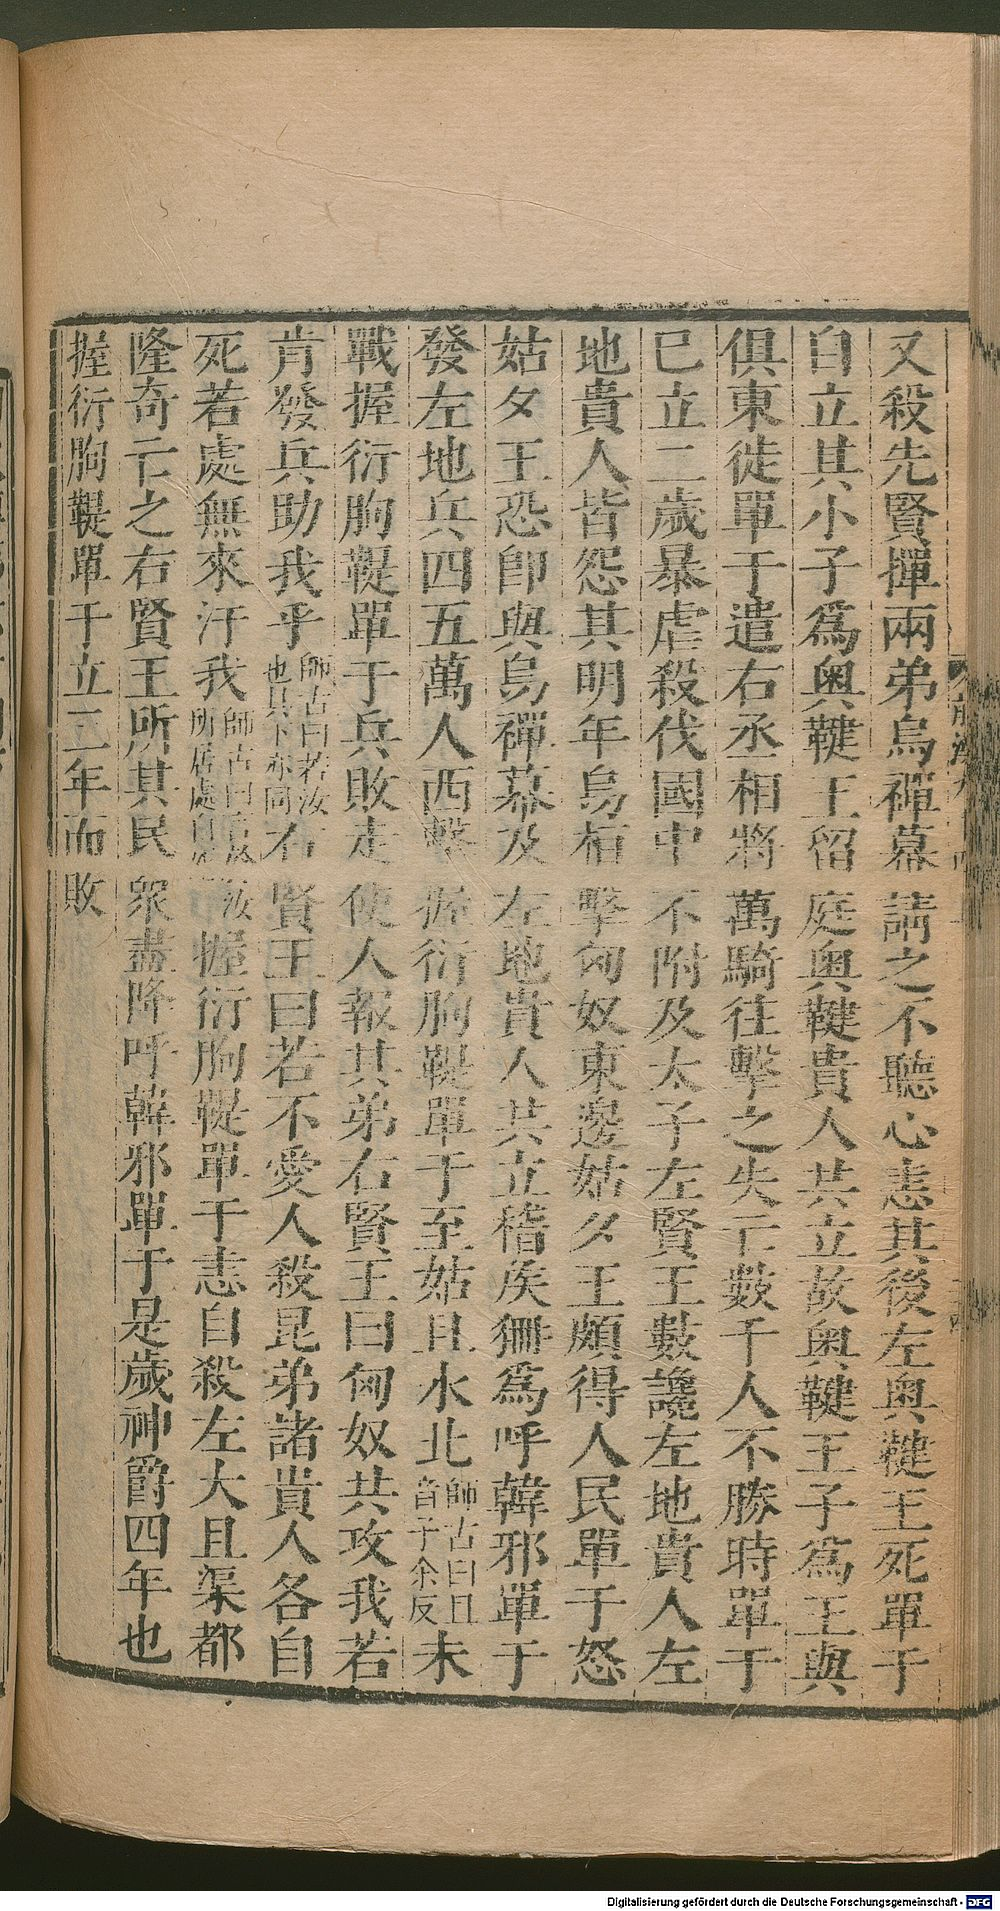 又殺先賢撣兩弟烏禪幕請之不聽心恚其後左奧鞬王死單于
自立其小子爲奧鞬王留庭奧鞬貴人共立故奧鞬王子爲王與
俱東徙單于遣右丞相將萬騎往擊之失亡數千人不勝時單于
已立二歲暴虐殺伐國中不附及太子左賢王數讒左地貴人左
地貴人皆怨其明年烏桓擊匈奴東邊姑夕王頗得人民單于怒
姑夕王恐卽與烏禪幕及左地貴人共立稽侯狦爲呼韓邪單于
發左地兵四五萬人西擊握衍朐鞮單于至姑且水北師古曰且音子余反未
戰握衍朐鞮單于兵敗走使人報其弟右賢王曰匈奴共攻我若
肯發兵助我乎師古曰若汝也其下亦同右賢王曰若不愛人殺昆弟諸貴人各自
死若處無來汙我師古曰言於汝所居處自握衍朐鞮單于恚自殺左大且渠都
隆奇亡之右賢王所其民衆盡降呼韓邪單于是歲神爵四年也
握衍朐鞮單于立三年而敗
Digitalisierung gefördert durch die Deutsche Forschungsgemeinschaft - DFG